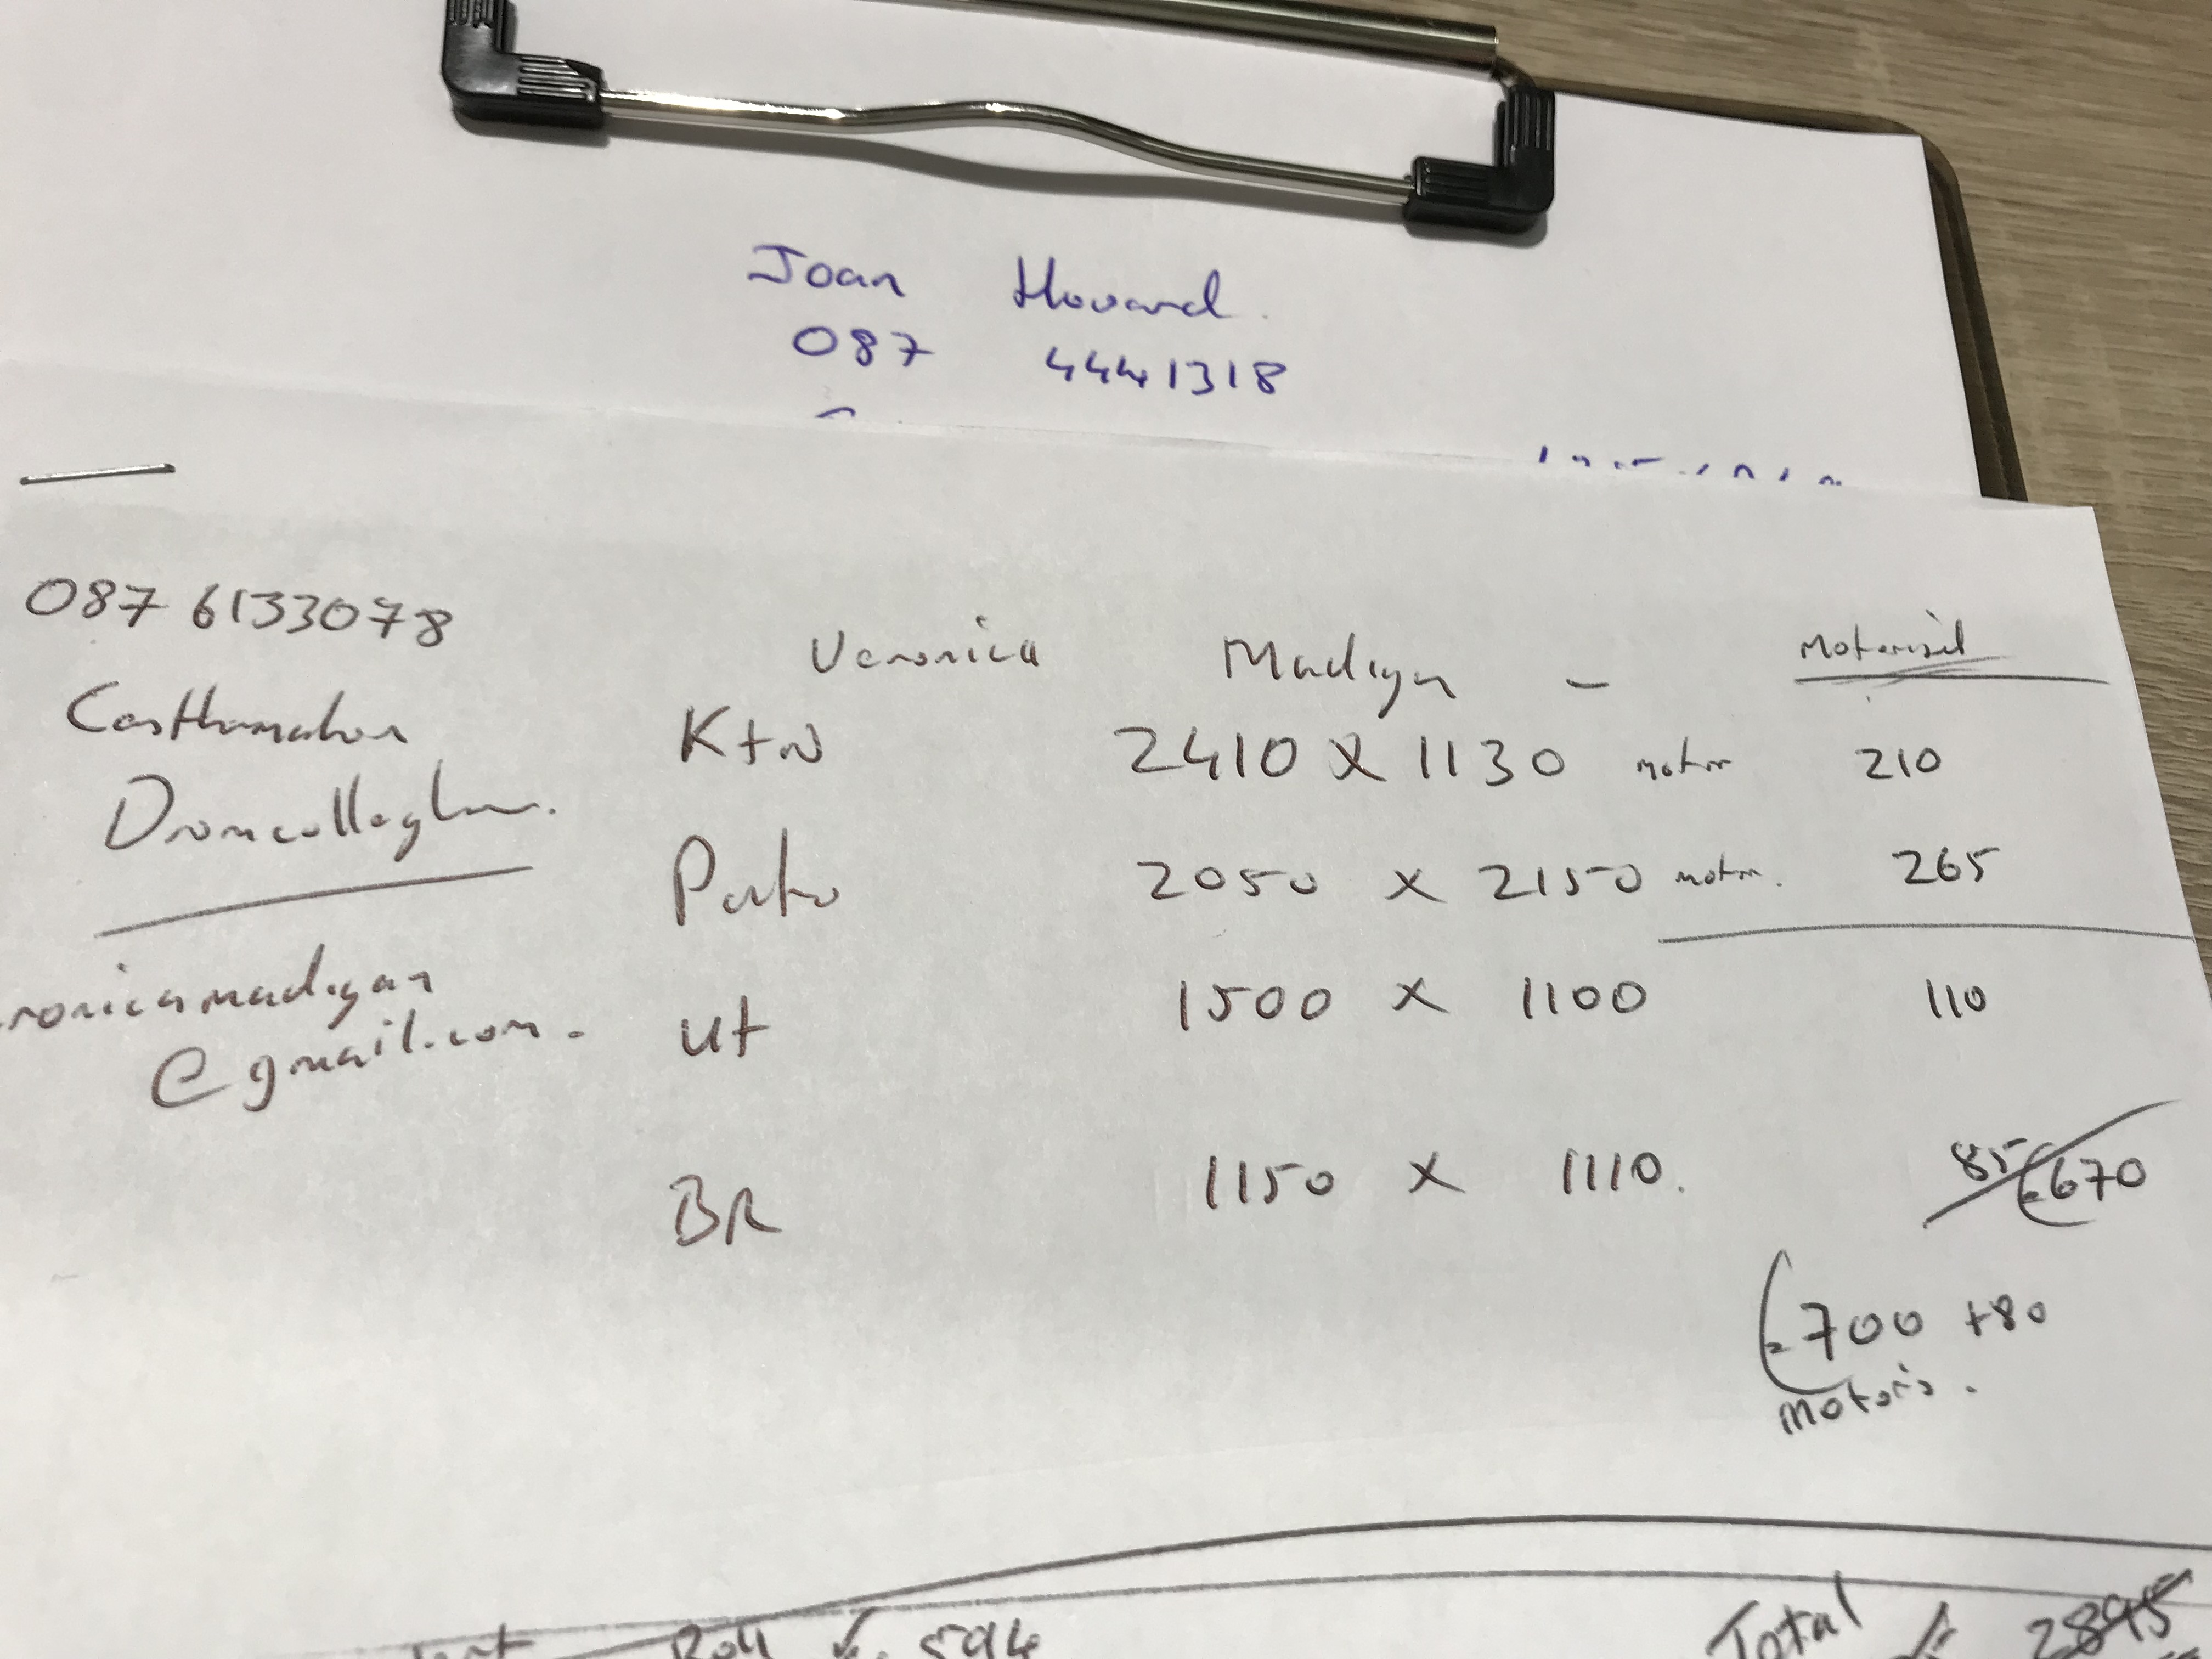 Joan Howard.
087 4441318
087 6133078
Veronica Madigan - Motorised
Castlemahon
Dromcollogher.
KtN 2410 x 1130 motor 210
Patio 2050 x 2150 motor. 265
ronicamadigan
@gmail.com.
Ut 1500 x 1100 110
BR 1150 x 1110. 85 €670
€700 +80
motoris.
Roll €. 594
Total € 2895